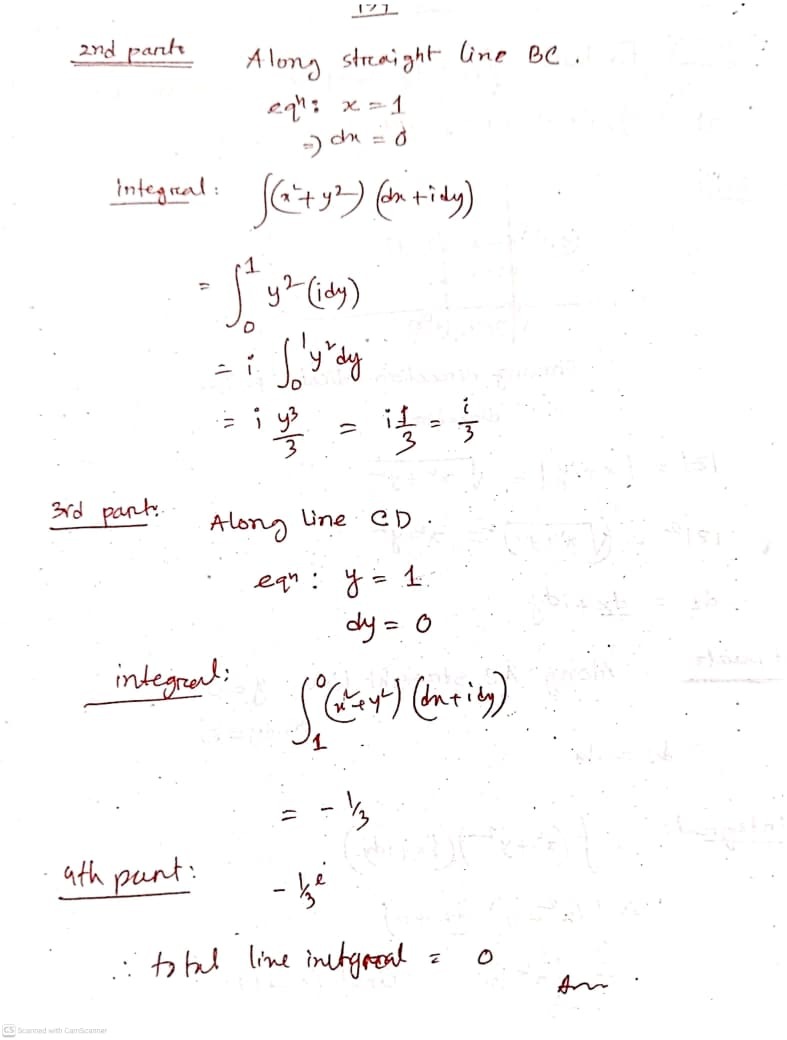 177
2nd part Along straight line BC.
eqⁿ: x = 1
⇒ dx = 0
integral: ∫(x²+y²) (dx+idy)
= ∫₀¹ y² (idy)
= i ∫₀¹ y² dy
= i y³/3 = i 1/3 = i/3
3rd part: Along line CD.
eqⁿ: y = 1
dy = 0
integral: ∫₁⁰ (x²+y²) (dx+idy)
= - 1/3
4th part: - 1/3 i
∴ total line intgral = 0
Ans.
CS Scanned with CamScanner